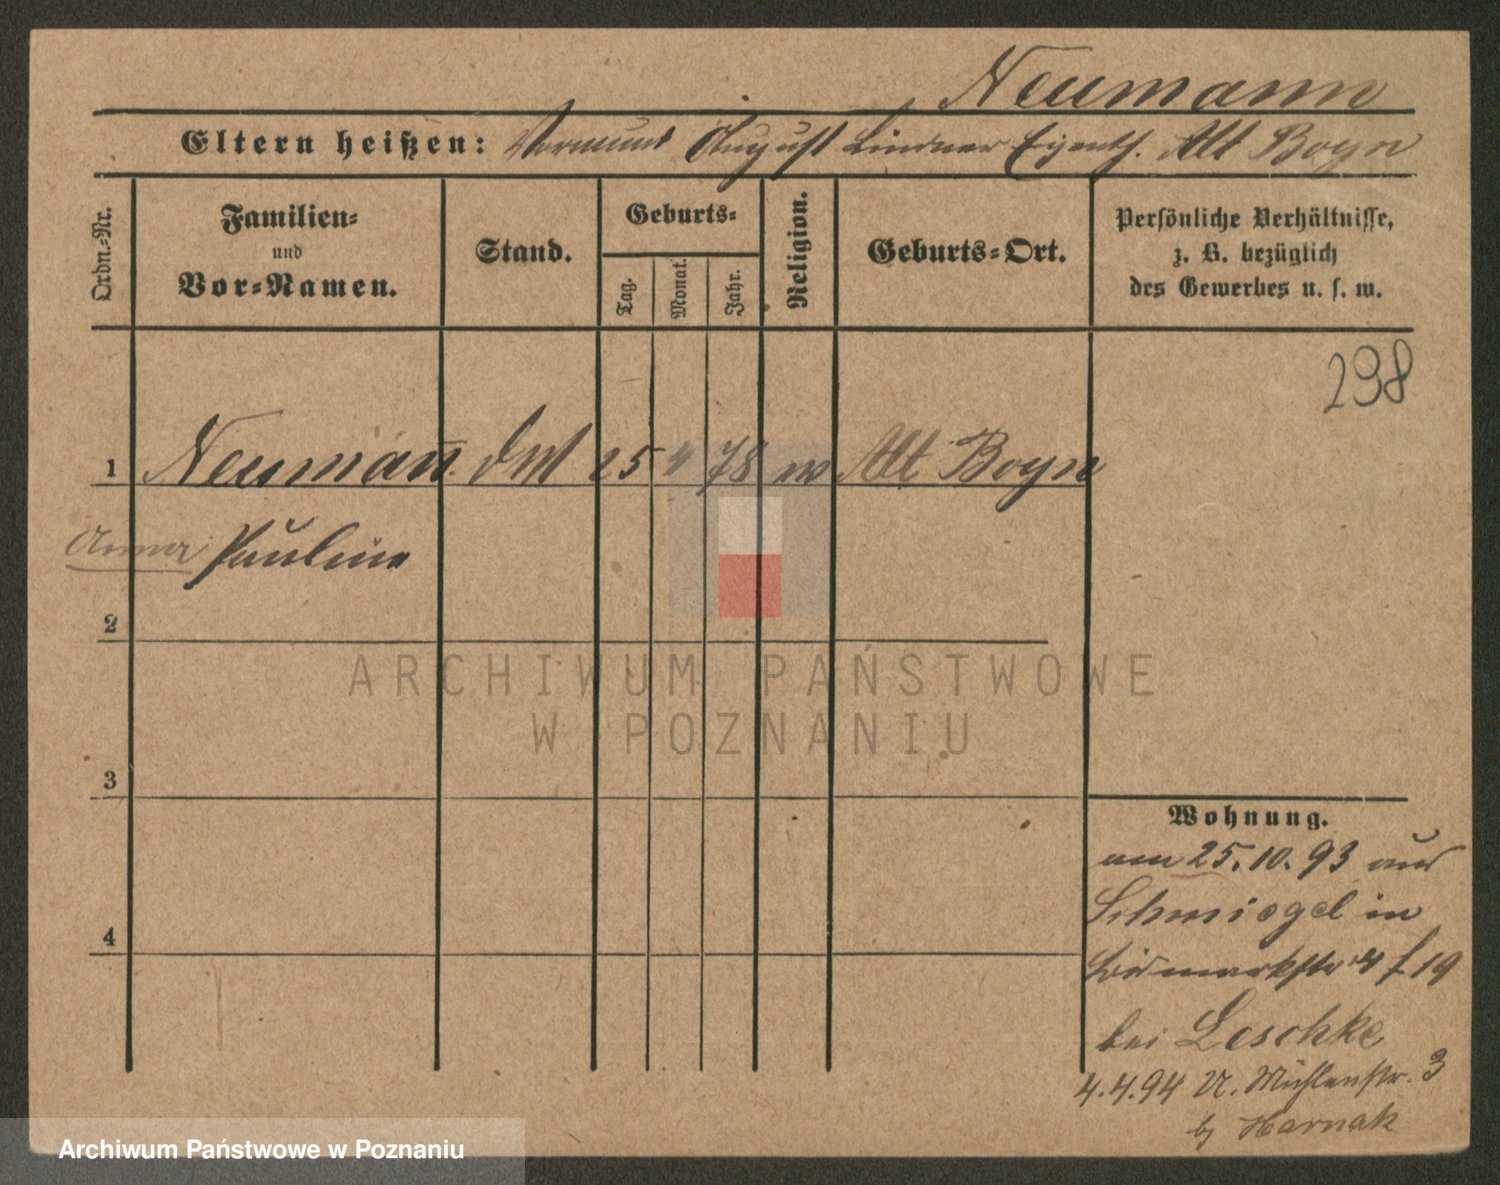 Neumann
Eltern heißen: Vormund August Lindner Eigenth. Alt Boyn
Ordn.-Nr.
Familien-
und
Vor-Namen.
Stand.
Geburts-
Tag.
Monat.
Jahr.
Religion.
Geburts-Ort.
Persönliche Verhältnisse,
z. B. bezüglich
des Gewerbes u. s. w.
298
1 Neuman̄ 25 4 78 Alt Boyn
Anna Pauline
2
3
4
Wohnung.
am 25.10.93 aus
Schmiegel in
Bismarkstr 4 f 19
bei Leschke
4.4.94 U. Mühlenstr. 3
b Harnak
ARCHIWUM PAŃSTWOWE
W POZNANIU
Archiwum Państwowe w Poznaniu